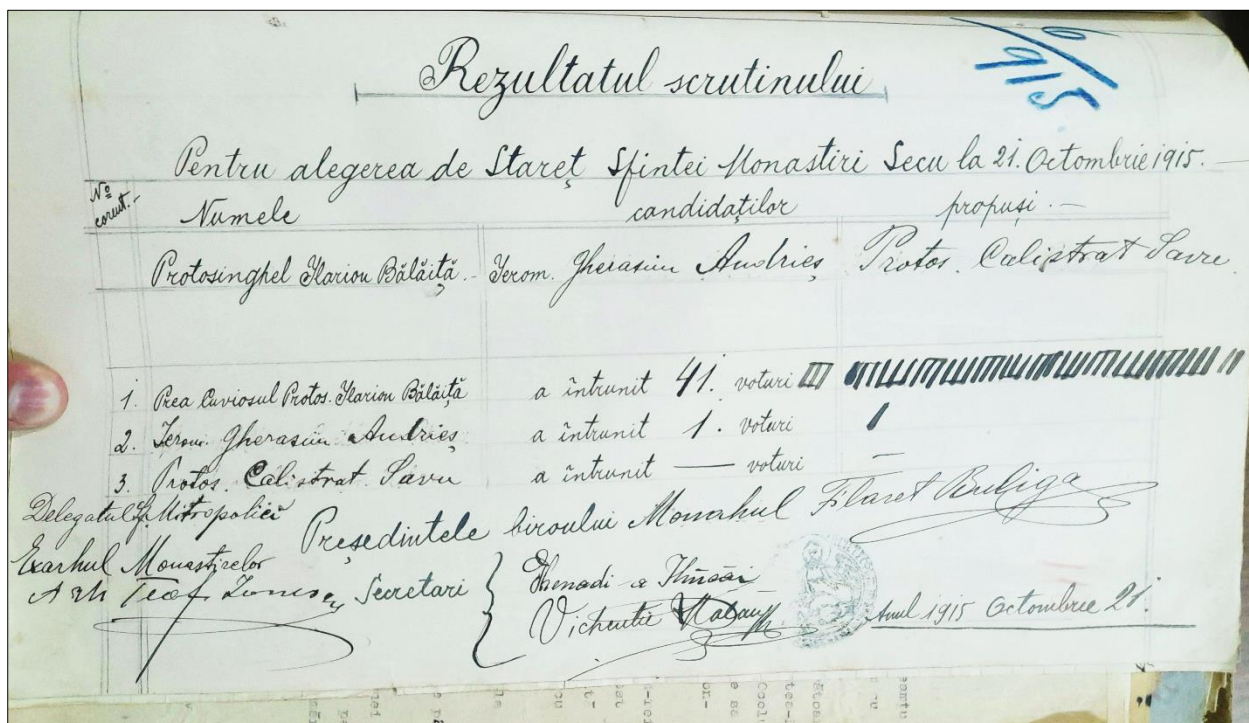 6/915
Rezultatul scrutinului
Pentru alegerea de Stareț Sfintei Monastiri Secu la 21. Octombrie 1915. —
No curent.- Numele candidaților propuși. —
Protosinghel Ilarion Bălăiță. Ierom. Gherasim Andrieș Protos. Calistrat Savu
1. Prea Cuviosul Protos. Ilarion Bălăiță a întrunit 41. voturi
2. Ierom. Gherasim Andrieș a întrunit 1. voturi
3. Protos. Calistrat Savu a întrunit — voturi —
Delegatul Sf. Mitropolii
Președintele biroului Monahul Filaret Buliga
Exarhul Monastirelor
Arh Teof Ionescu Secretari
Ghenadi
Vichentie
Anul 1915 Octombrie 21.